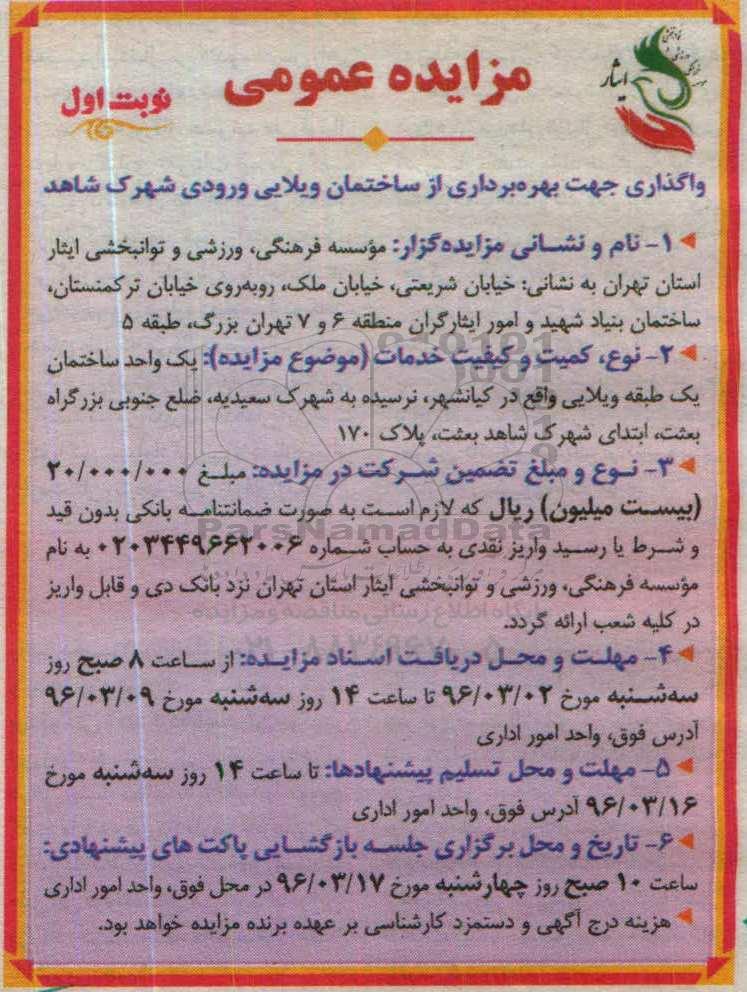 ایثار
مزایده عمومی
نوبت اول
واگذاری جهت بهره‌برداری از ساختمان ویلایی ورودی شهرک شاهد
۱- نام و نشانی مزایده‌گزار: مؤسسه فرهنگی، ورزشی و توانبخشی ایثار
استان تهران به نشانی: خیابان شریعتی، خیابان ملک، روبه‌روی خیابان ترکمنستان،
ساختمان بنیاد شهید و امور ایثارگران منطقه ۶ و ۷ تهران بزرگ، طبقه ۵
۲- نوع، کمیت و کیفیت خدمات (موضوع مزایده): یک واحد ساختمان
یک طبقه ویلایی واقع در کیانشهر، نرسیده به شهرک سعیدیه، ضلع جنوبی بزرگراه
بعثت، ابتدای شهرک شاهد بعثت، پلاک ۱۷۰
۳- نوع و مبلغ تضمین شرکت در مزایده: مبلغ ۲۰/۰۰۰/۰۰۰
(بیست میلیون) ریال که لازم است به صورت ضمانتنامه بانکی بدون قید
و شرط یا رسید واریز نقدی به حساب شماره ۰۲۰۳۴۴۹۶۶۲۰۰۶ به نام
مؤسسه فرهنگی، ورزشی و توانبخشی ایثار استان تهران نزد بانک دی و قابل واریز
در کلیه شعب ارائه گردد.
۴- مهلت و محل دریافت اسناد مزایده: از ساعت ۸ صبح روز
سه‌شنبه مورخ ۹۶/۰۳/۰۲ تا ساعت ۱۴ روز سه‌شنبه مورخ ۹۶/۰۳/۰۹
آدرس فوق، واحد امور اداری
۵- مهلت و محل تسلیم پیشنهادها: تا ساعت ۱۴ روز سه‌شنبه مورخ
۹۶/۰۳/۱۶ آدرس فوق، واحد امور اداری
۶- تاریخ و محل برگزاری جلسه بازگشایی پاکت های پیشنهادی:
ساعت ۱۰ صبح روز چهارشنبه مورخ ۹۶/۰۳/۱۷ در محل فوق، واحد امور اداری
هزینه درج آگهی و دستمزد کارشناسی بر عهده برنده مزایده خواهد بود.
ParsNamadData
پایگاه اطلاع رسانی مناقصه و مزایده